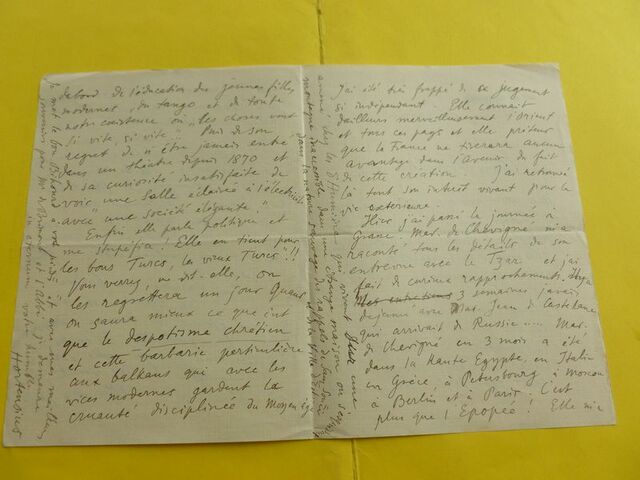 d'abord de l'éducation des jeunes filles
modernes, du tango et de toute
notre existence où "les choses vont
si vite, si vite". Puis de son
regret de n'être jamais entrée
dans un théâtre depuis 1870 et
de sa curiosité insatisfaite de
voir une salle éclairée à l'électricité
avec "une société élégante".
Enfin elle parle politique et
me stupéfia! Elle en tient pour
les bons Turcs, les vieux Turcs!!
Vous verrez, me dit-elle, on
les regrettera un jour quand
on saura mieux ce que c'est
que le despotisme chrétien
et cette barbarie particulière
aux balkans qui avec les
vices modernes gardent la
cruauté disciplinée du Moyen âge
J'ai été très frappé de ce jugement
si indépendant. Elle connait
d'ailleurs merveilleusement l'Orient
et tous ces pays et elle prétend
que la France ne tirera aucun
avantage dans l'avenir du fait
de cette création. J'ai retrouvé
là tout son intérêt vivant pour la
vie extérieure.
Hier j'ai passé la journée à
Grasse. Mad. de Chevigné m'a
raconté tous les détails de son
entrevue avec le Tzar et j'ai
fait de curieux rapprochements,
3 semaines j'avais
déjeuné avec Mad. Jean de Castellane
qui arrivait de Russie..... Mad.
de Chevigné en 3 mois a été
dans la Haute Egypte, en Italie
en Grèce, à Petersbourg, à Moscou
à Berlin et à Paris. C'est
plus que l'Epopée! Elle m'a
amené chez les
qui vivent dans une
montagne inaccessible dans une étrange maison où
dans la nature sauvage
le mot le bon
à vos pieds et avec mes meilleurs
souvenirs pour Mr